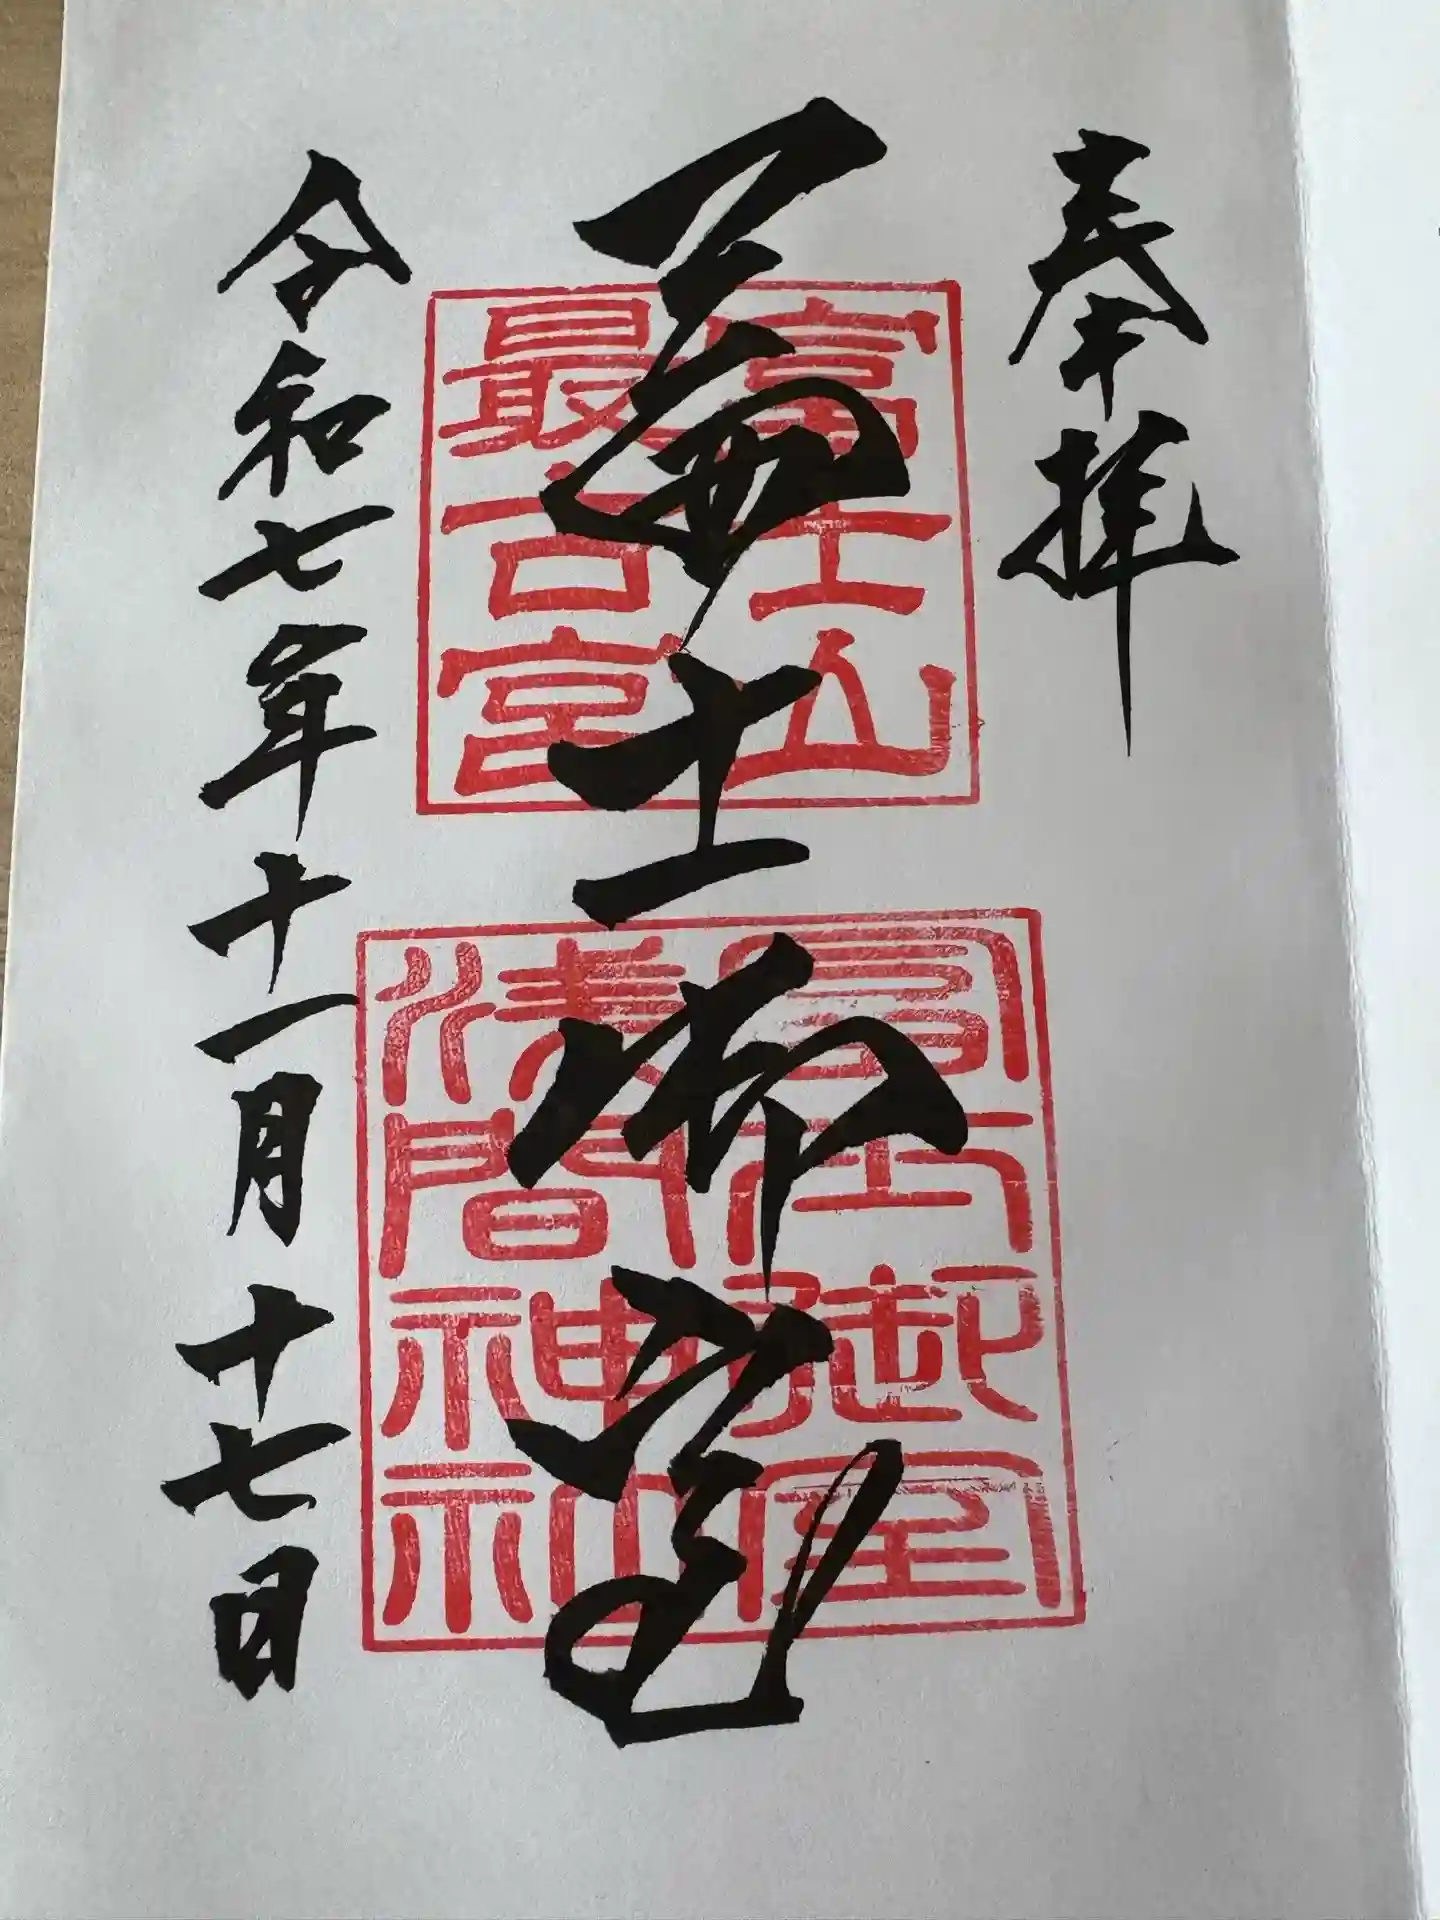 奉拝
冨士山
最古宮
冨士御室
冨士御室
浅間神社
令和七年十一月十七日